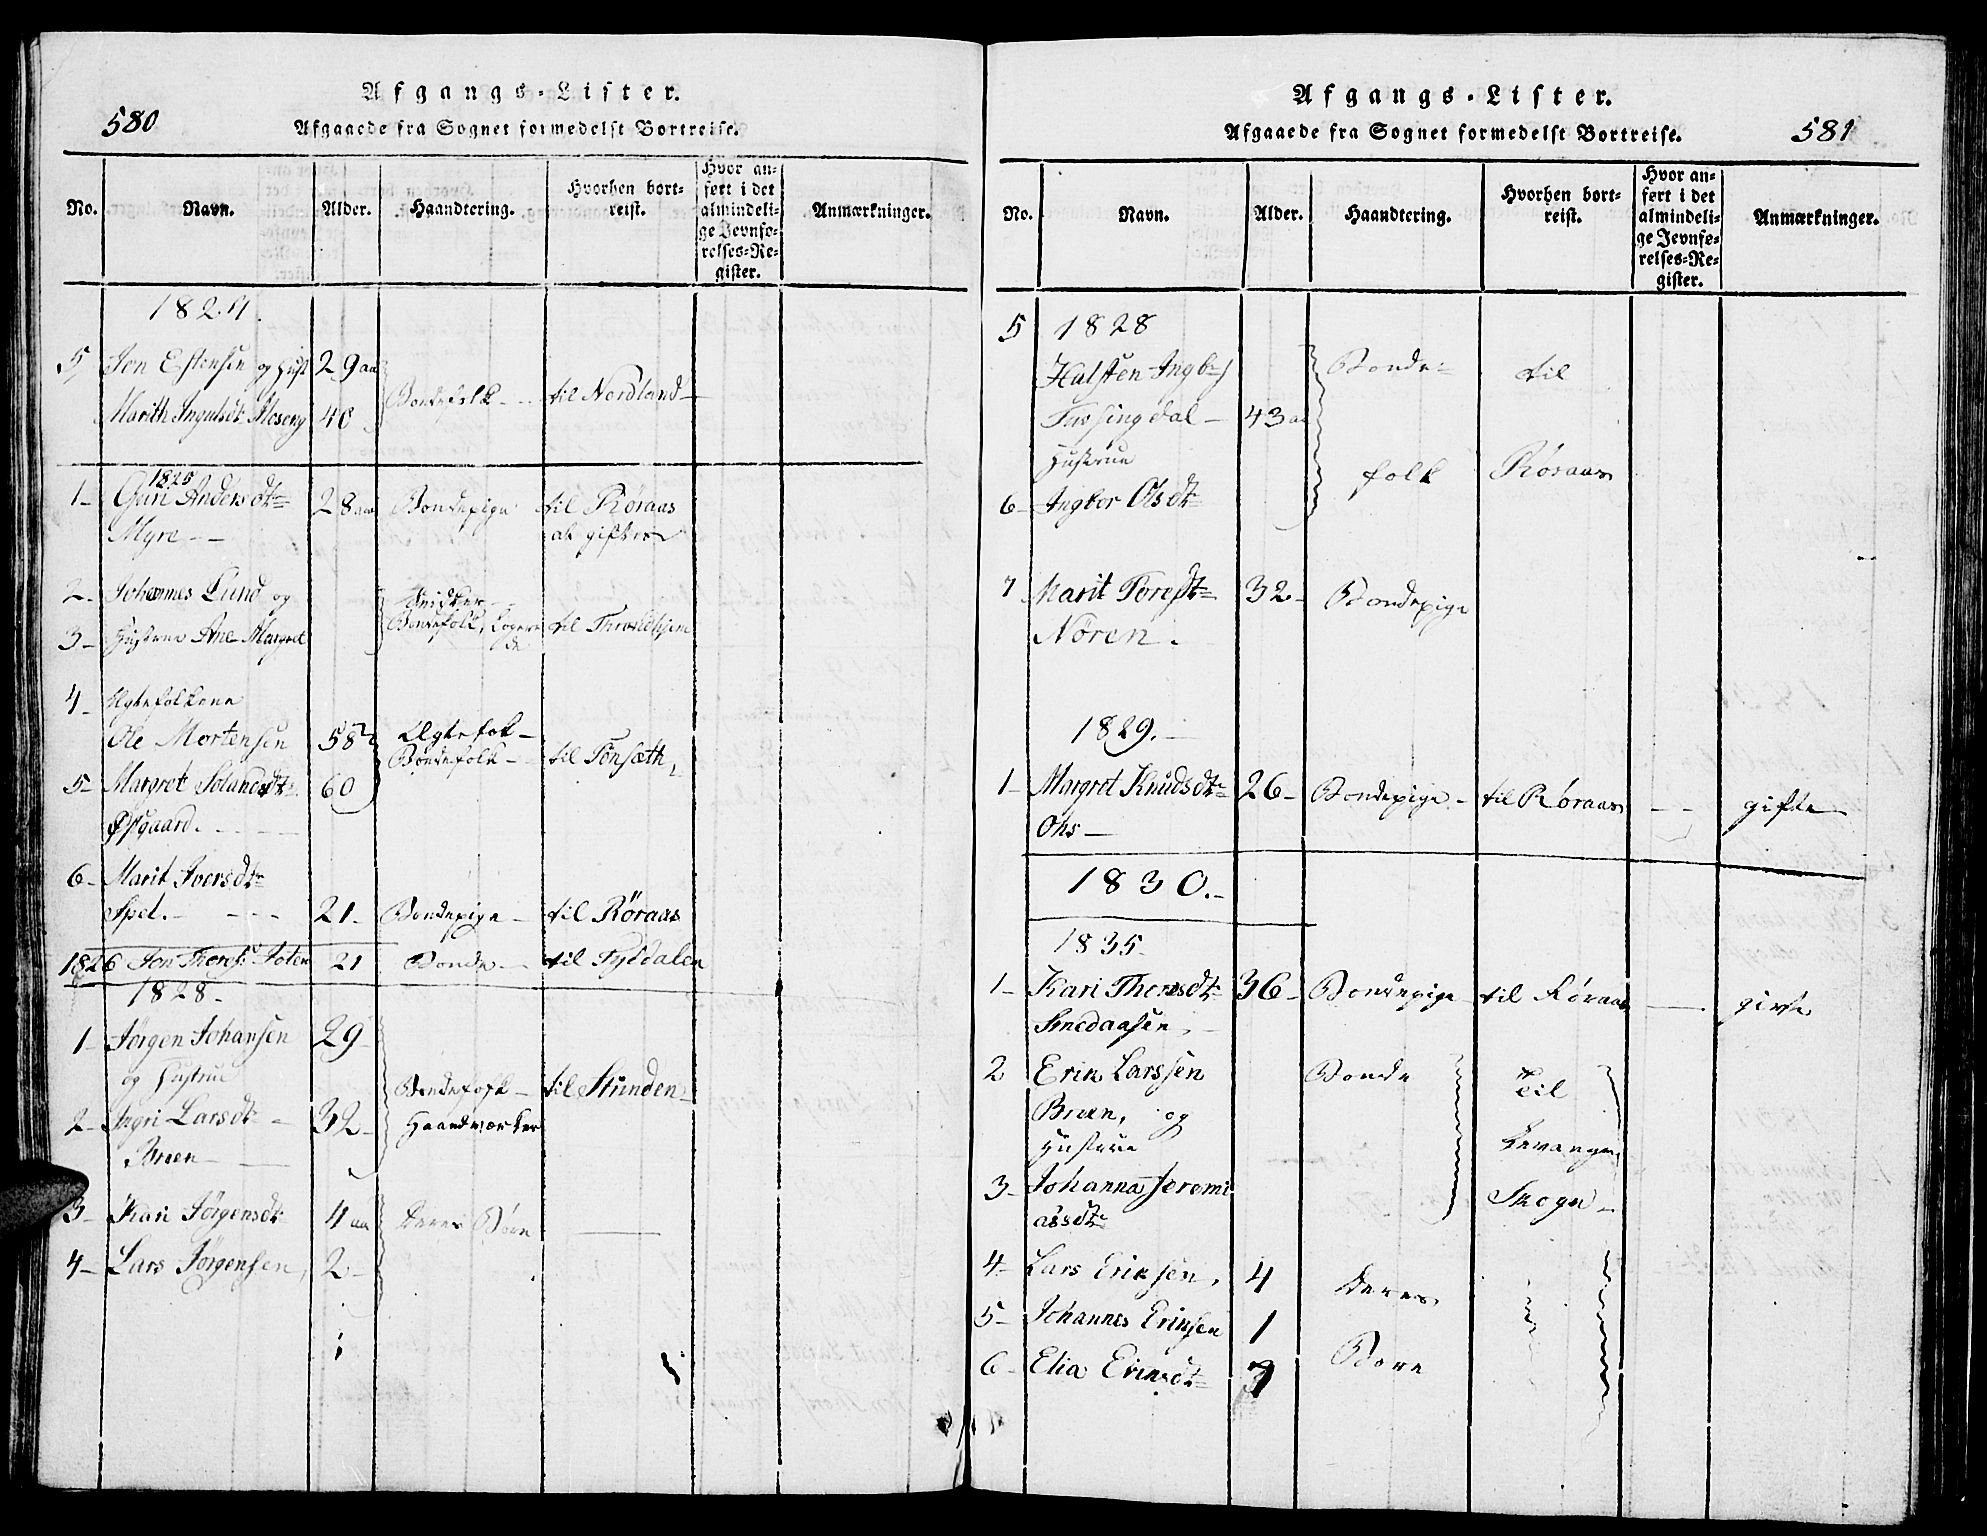 580
Afgangs-Lister.
Afgaaede fra Sognet formedelst Bortreise.
No. Navn. Alder. Haandtering. Hvorhen bortreist. Hvor anført i det almindelige Jevnførelses-Register. Anmærkninger.
1824.
5 Jon Estensen og Hust 29 aa
Marith Ingulsdt Moseng 40 Bondefolk - til Nordland
1825
1- Guri Andersdtr 28 aar Bondepige til Røraas
Myre - at giftes
2- Johannes Lund og Snidker
3- Hustrue Ane Margret Bondefolk, Logerende til Throndhjem
4- Ægtefolkene
Ole Mortensen 58 Ægtefolk -
Bondefolk - til Tønsæth,
5- Margret 60
Østgaard.
6- Marit Iversdtr
Spel. - 21- Bondepige - til Røraas
1826 Jon Thores: Toten 21 Bonde - til Tyldalen
1828.
1- Jørgen Johansen 29-
og Hustrue
Bondefolk - til
2- Ingri Larsdtr 32- Haandværker
Bruen
3- Kari Jørgensdtr 4 aa deres Børn
4- Lars Jørgensen, 2-
Afgangs-Lister.
Afgaaede fra Sognet formedelst Bortreise.
581
No. Navn. Alder. Haandtering. Hvorhen bortreist. Hvor anført i det almindelige Jevnførelses-Register. Anmærkninger.
5 1828
Halsten Ingbr Bonde- til
43 aa
Hustrue folk Røraas
6- Ingbor Olsdtr
7 Marit Toresdtr 32- Bondepige
Nøren.
1829.
1- Margret Knudsdtr 26- Bondepige - til Røraas - - gifte
Ohs
1830.-
1835.
1- Kari Thoresdtr 36- Bondepige til Røraas - givte
Smedaasen,
2 Erik Larssen Bonde Til
Bruen, og
Hustrue Levanger
3- Johanna Jeremi Skogn -
assdtr
4- Lars Eriksen, 4 deres
5- Johannes Eriksen 1
6- Elia Eriksdtr 7 Børn